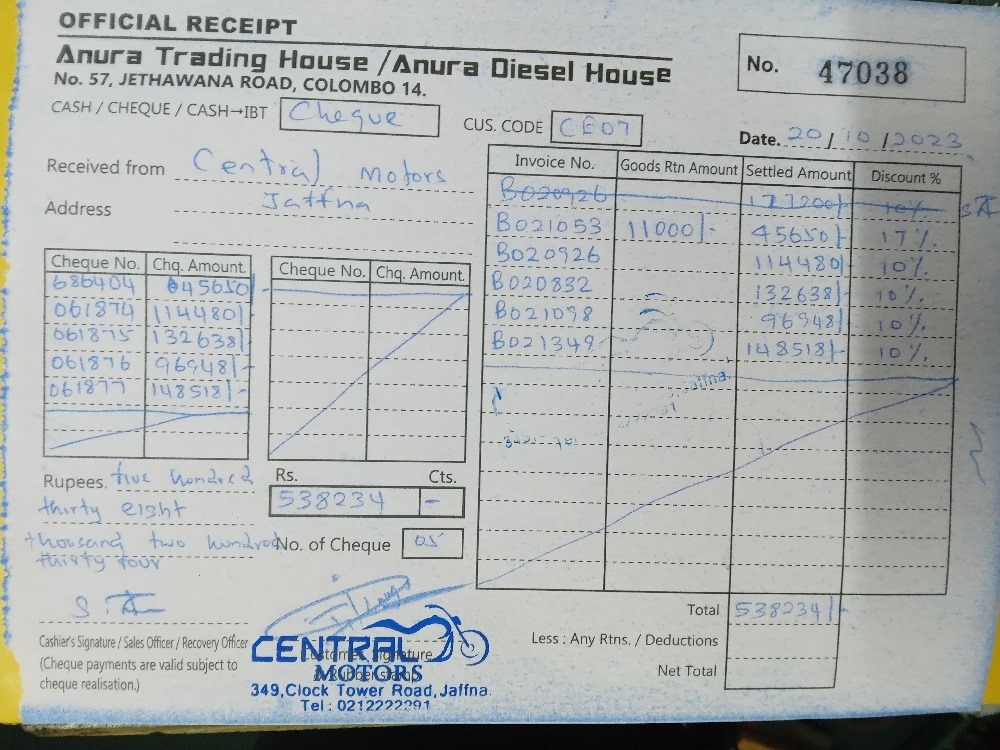 OFFICIAL RECEIPT
Anura Trading House /Anura Diesel House
No. 57, JETHAWANA ROAD, COLOMBO 14.
No. 47038
CASH / CHEQUE / CASH→IBT Cheque
CUS. CODE CE07
Date. 20/10/2023
Received from Central Motors
Address Jaffna
Invoice No. Goods Rtn Amount Settled Amount Discount %
B020926 177200/- 10%
B021053 11000/- 45650/- 17%
B020926 114480/- 10%
B020832 132638/- 10%
B021098 96948/- 10%
B021349 148518/- 10%
Cheque No. Chq. Amount.
686404 45650/-
061874 114480/-
061875 132638/-
061876 96948/-
061877 148518/-
Cheque No. Chq. Amount.
Jaffna.
Rupees. five hundred
thirty eight
thousand two hundred
thirty four
Rs. Cts.
538234 -
No. of Cheque 05
Total 538234/-
Less : Any Rtns. / Deductions
Net Total
Cashier's Signature / Sales Officer / Recovery Officer
(Cheque payments are valid subject to
cheque realisation.)
Customer Signature
& Rubber stamp
CENTRAL
MOTORS
349,Clock Tower Road,Jaffna.
Tel : 0212222291